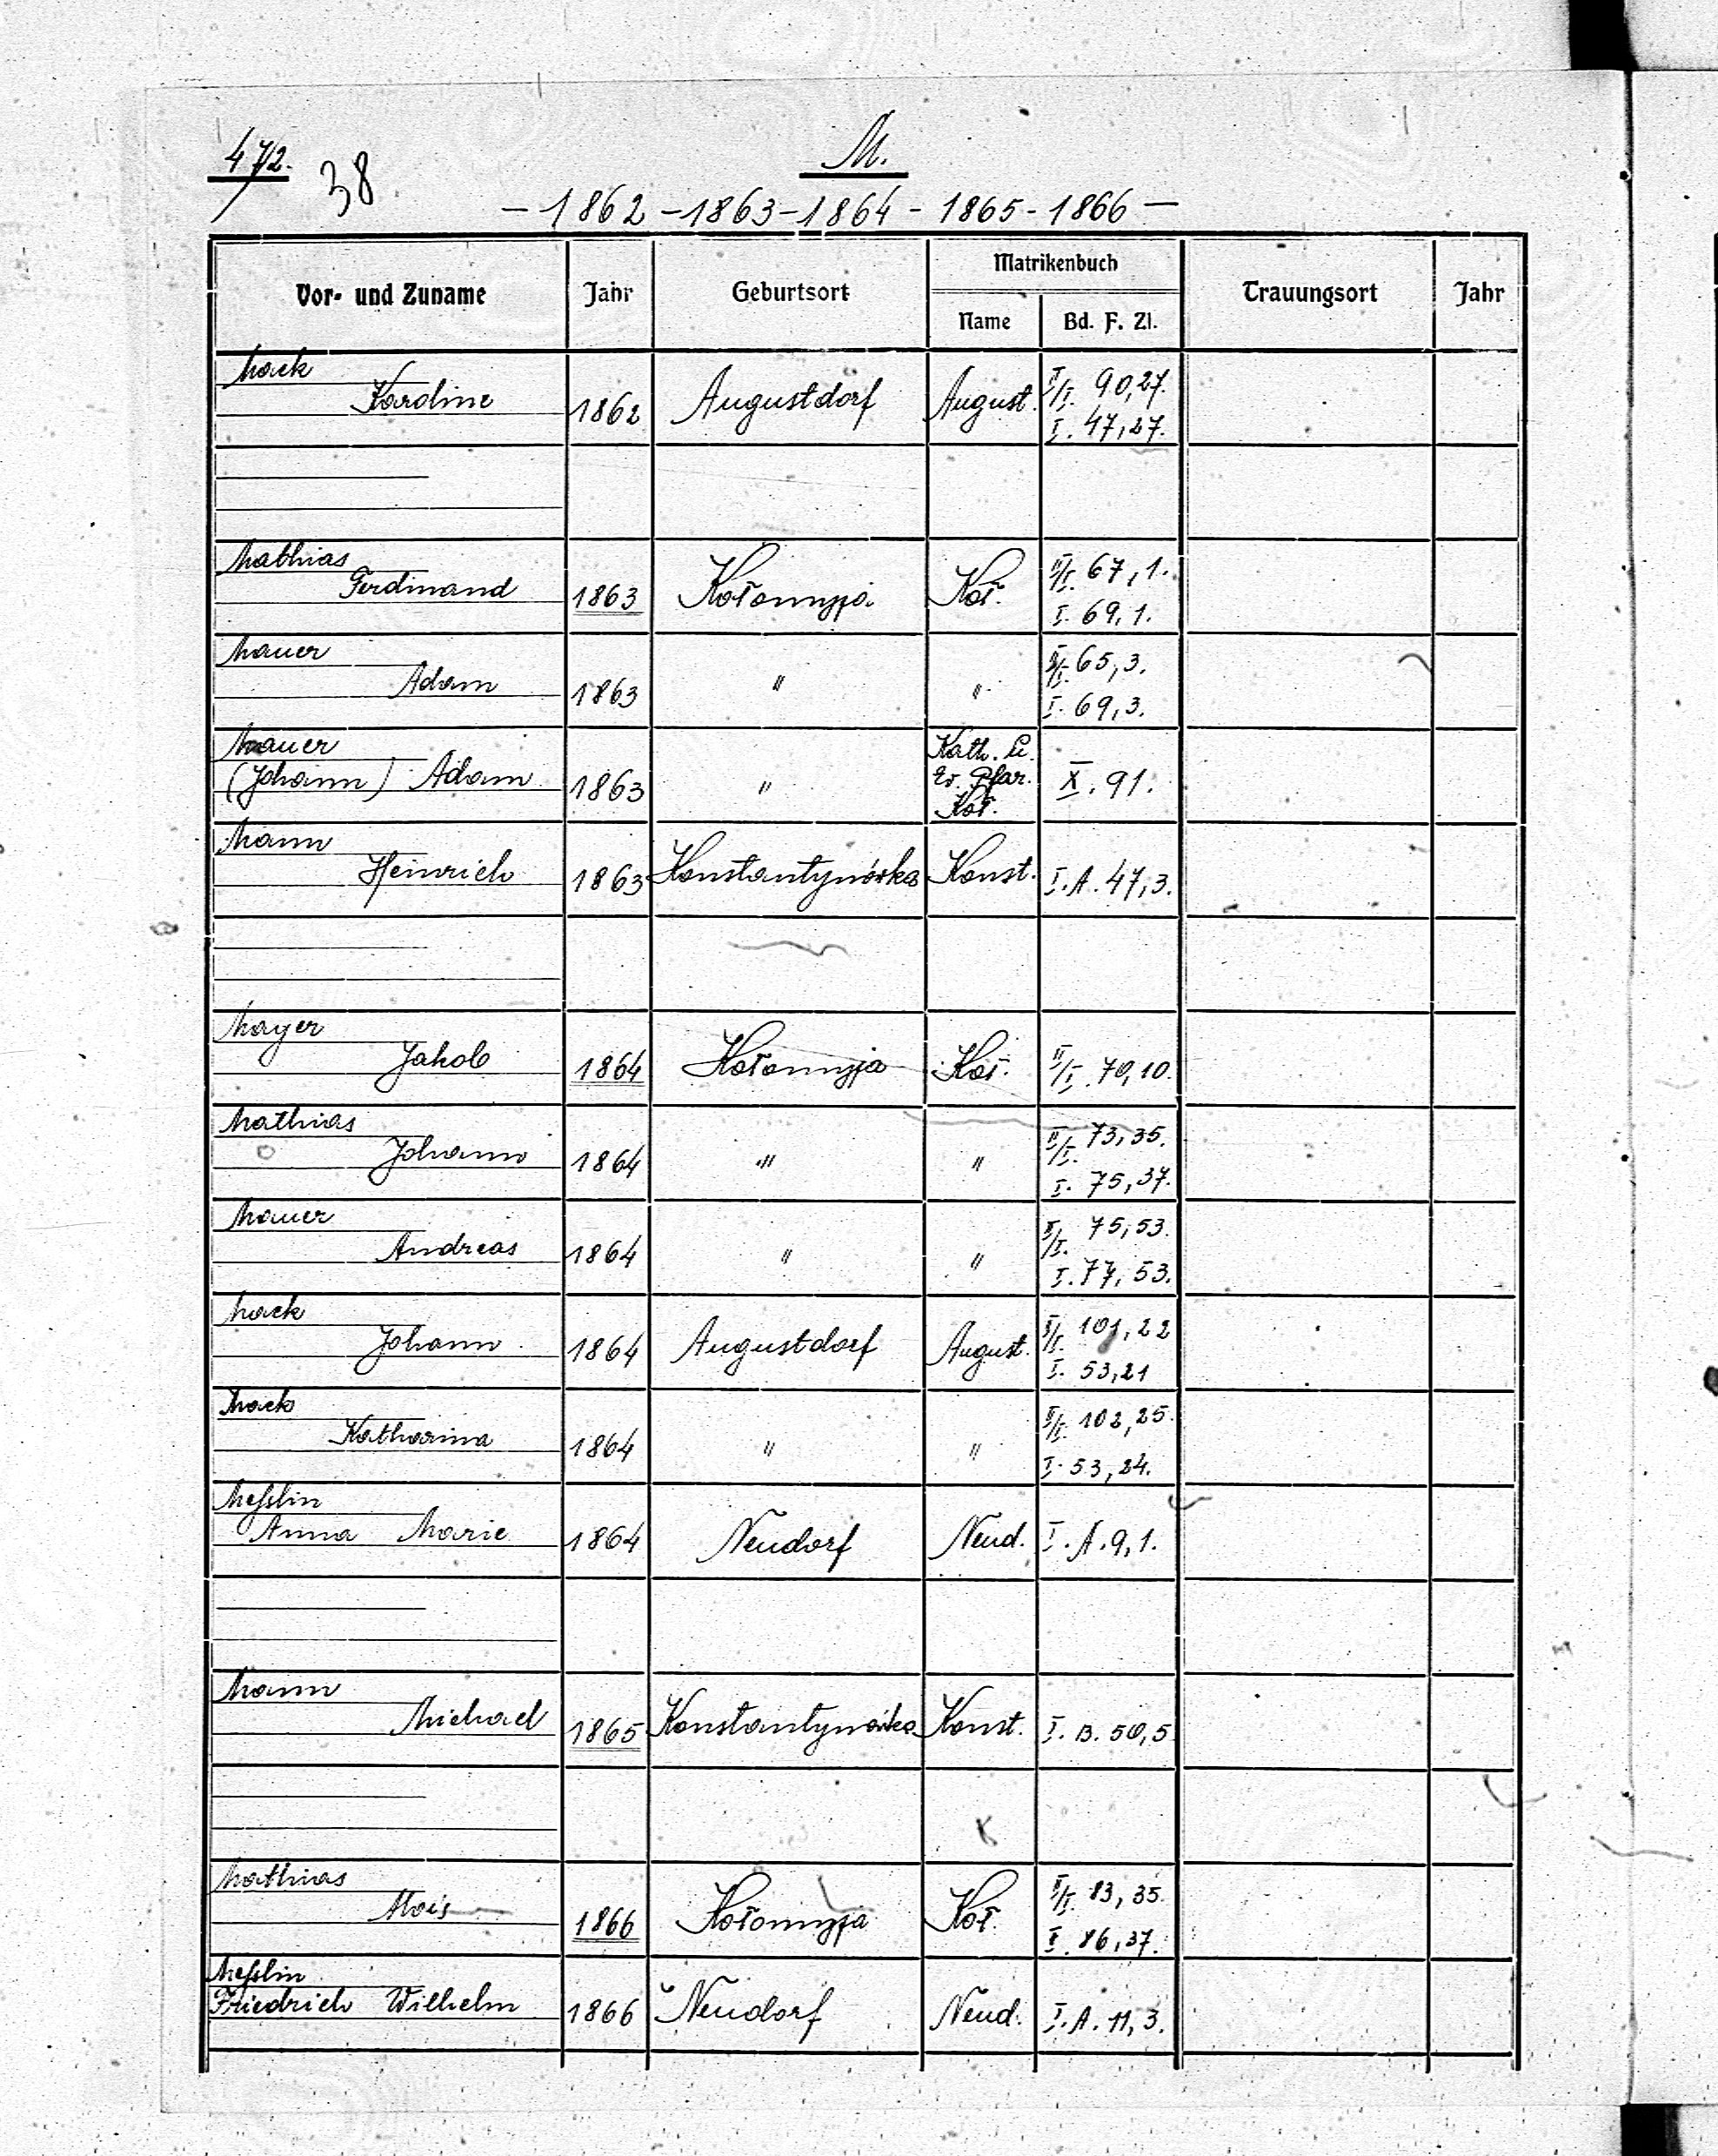 472.
38
M.
- 1862 - 1863 - 1864 - 1865 - 1866 -
Vor- und Zuname Jahr Geburtsort Matrikenbuch Trauungsort Jahr
Name Bd. F. Zl.
Mack
Karoline 1862 Augustdorf August. II/I. 90,27.
I. 47,27.
Mathias
Ferdinand 1863 Kołomyja Koł. II/I. 67,1.
I. 69,1.
Mauer
Adam 1863 " " II/I. 65,3.
I. 69,3.
Mauer
(Johann) Adam 1863 " Kath. u.
Ev. Pfar.
Koł. X. 91.
Mann
Heinrich 1863 Konstantynówka Konst. I. A. 47,3.
Mayer
Jakob 1864 Kołomyja Koł. II/I. 70,10.
Mathias
Johann 1864 " " II/I. 73,35.
I. 75,37.
Mauer
Andreas 1864 " " II/I. 75,53.
I. 77,53.
Mack
Johann 1864 Augustdorf August. II/I. 101,22
I. 53,21
Mack
Katharina 1864 " " II/I. 102,25.
I. 53,24.
Meßlin
Anna Marie 1864 Neudorf Neud. I. A. 9,1.
Mann
Michael 1865 Konstantynówka Konst. I. B. 50,5
Mathias
Alois 1866 Kołomyja Koł. II/I. 83,35.
I. 86,37.
Meßlin
Friedrich Wilhelm 1866 Neudorf Neud. I. A. 11,3.